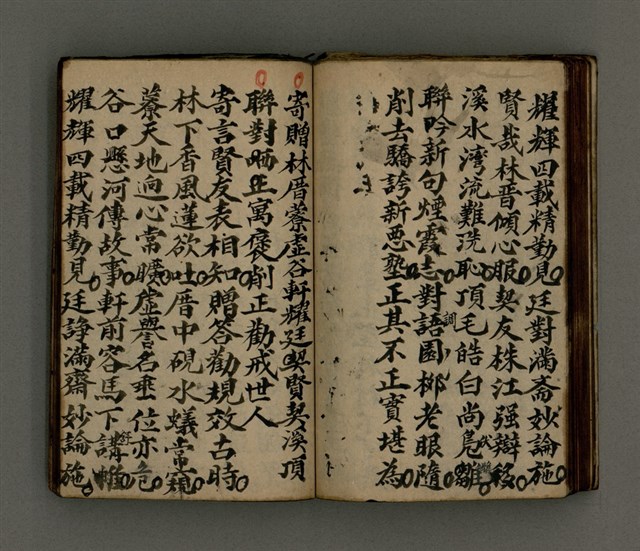 耀輝四載精勤見廷對滿斋妙論施
賢哉林晋傾心服契友株江强辯移
溪水湾流難洗恥頂毛皓白尚卮雛
聯吟新句煙霞志對語園梆老眼隨
調
削去驕誇新惡塾正其不正實堪為
寄贈林厝藔虛谷軒耀廷契賢契溪頂
聯對哂正寓褒削正勸戒世人
寄言賢友表相知贈答勸規效古時
林下香風蓮欲吐厝中硯水蟻常窺
藔天地迥心常曠虛譽名垂位亦危
谷口懸河傳故事軒前容馬下講帷
耀輝四載精勤見廷諍滿齋妙論施